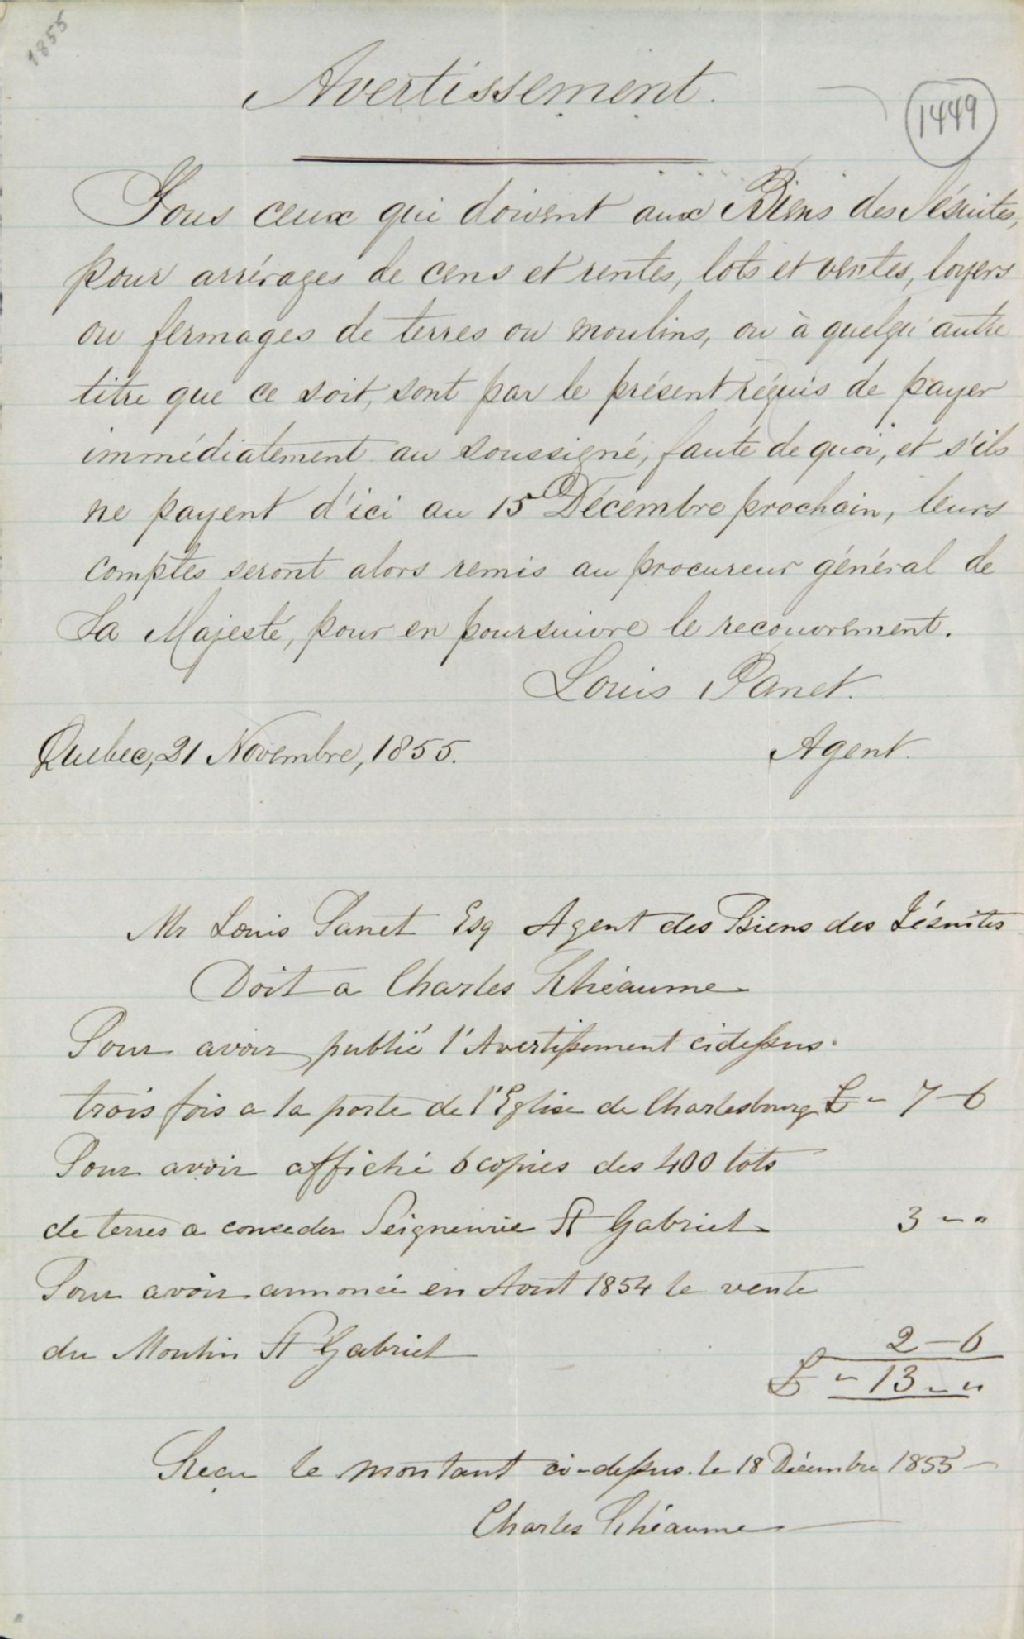 1855
Avertissement.
1449
Tous ceux qui doivent aux Biens des Jésuites,
pour arrérages de cens et rentes, lots et ventes, loyers
ou fermages de terres ou moulins, ou à quelqu'autre
titre que ce soit, sont par le présent réquis de payer
immédiatement au soussigné, faute de quoi, et s'ils
ne payent d'ici au 15 Décembre prochain, leurs
comptes seront alors remis au procureur général de
Sa Majesté, pour en poursuivre le recouvrement.
Louis Panet.
Québec, 21 Novembre, 1855. Agent.
Mr Louis Panet Esq Agent des Biens des Jésuites
Doit a Charles Rhéaume
Pour avoir publié l'Avertissement cidessus.
trois fois a la porte de l'Eglise de Charlesbourg £ " 7-6
Pour avoir affiché 6 copies des 400 lots
de terres a conceder Seigneurie St Gabriel 3 - "
Pour avoir annoncé en Aout 1854 la vente
du Moulin St Gabriel 2-6
£ " 13 - "
Reçu le montant ci-dessus le 18 Décembre 1855
Charles Rhéaume